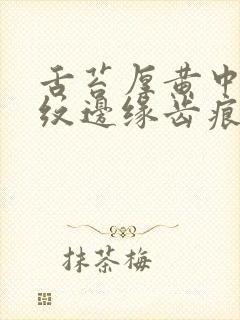 舌苔厚黄中
纹邊缘齿痕
抹茶梅